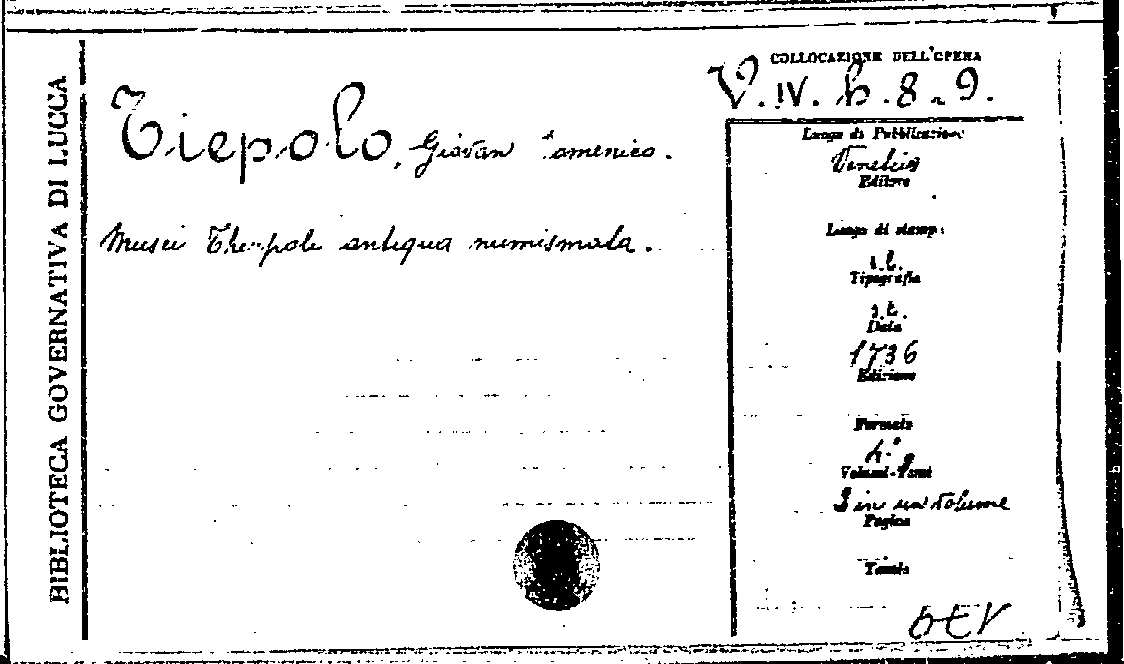 BIBLIOTECA GOVERNATIVA DI LUCCA
COLLOCAZIONE DELL'OPERA
V. IV. h. 8-9.
Tiepolo, Giovan Domenico.
Musei Theupoli antiqua numismata.
Luogo di Pubblicazione
Venetiis
Editore
Luogo di stamp.
s.t.
Tipografia
s.t.
Data
1736
Edizione
Formato
4.°
Volumi-Tomi
2 in un volume
Pagine
Tavole